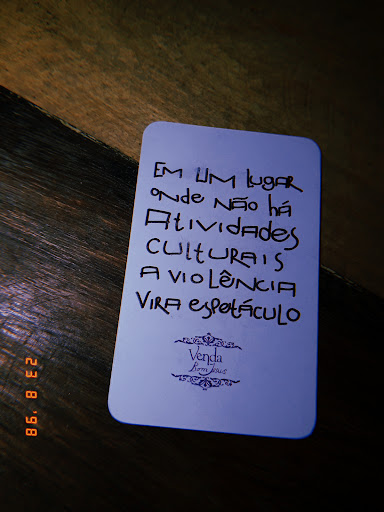 EM UM lugar
onde NÃO há
Atividades
CULTURAIS
A VIOLÊNCIA
VIRA espetáculo
Venda
Bom Jesus
23 8 '98